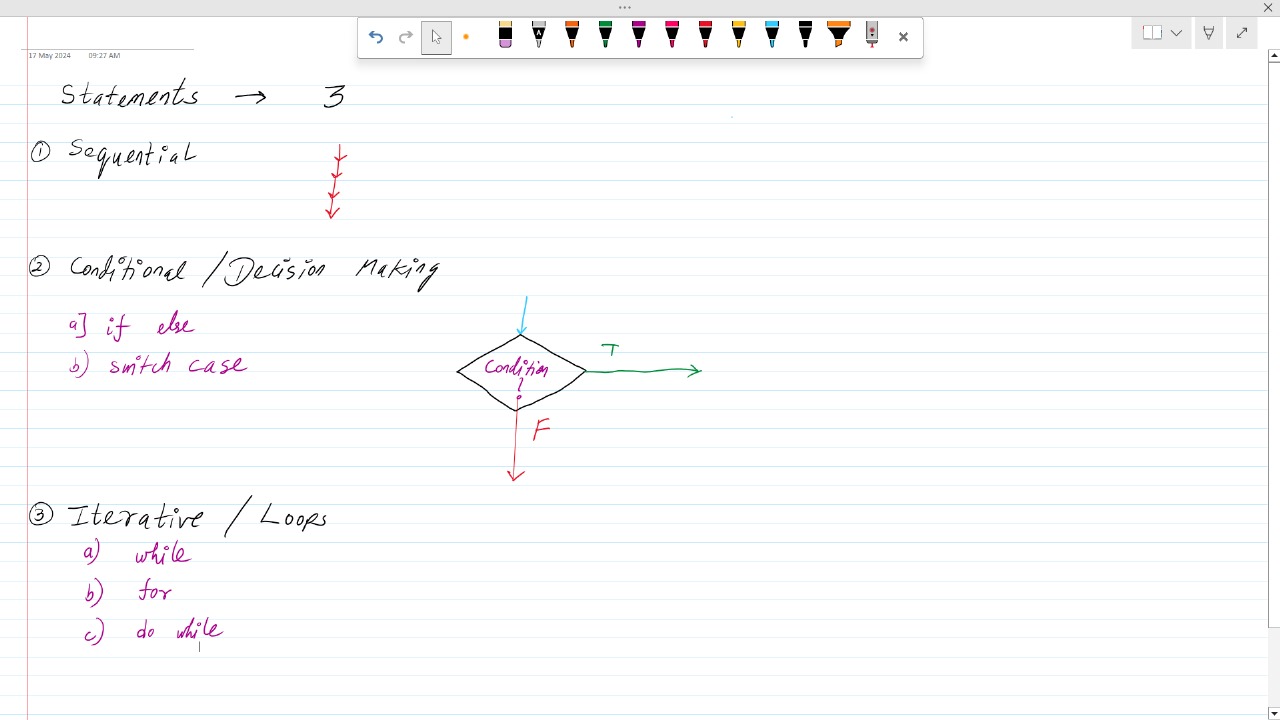 17 May 2024 09:27 AM
Statements → 3
① Sequential
② Conditional / Decision Making
a] if else
b) switch case
Condition
?
T
F
③ Iterative / Loops
a) while
b) for
c) do while